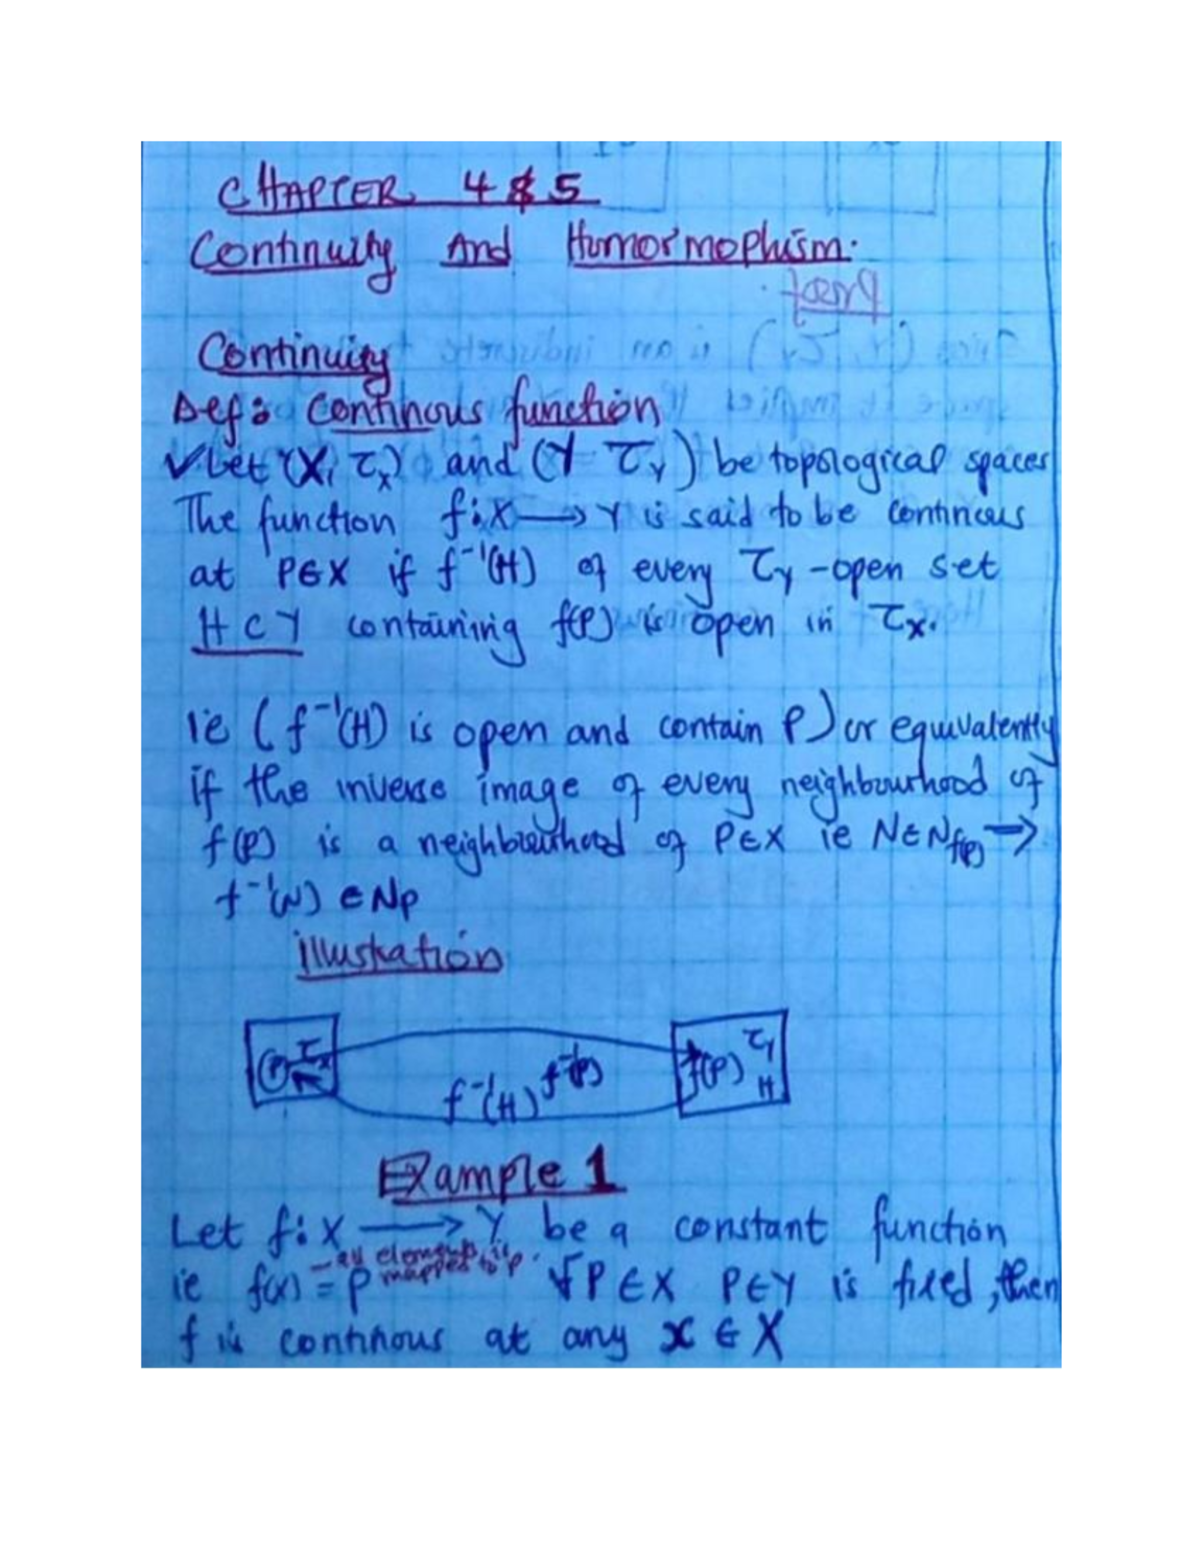 CHAPTER 4 & 5
Continuity And Humormophism.
Continuity
Def: Continous function
✓Let (X, τx) and (Y τY) be topological spaces
The function f: X → Y is said to be continous
at P∈X if f⁻¹(H) of every τY-open set
H ⊂ Y containing f(P) is open in τx.
ie (f⁻¹(H) is open and contain P) or equivalently
if the inverse image of every neighbourhood of
f(P) is a neighbourhood of P∈X ie N∈Nf(p) →
f⁻¹(N) ∈ Np
illustration
P τx f⁻¹(H) f⁻¹(P) f(P) τY H
Example 1
Let f: X → Y be a constant function
all elements is
mapped to p.
ie f(x) = P ∀P∈X P∈Y is fixed, then
f is continous at any x ∈ X